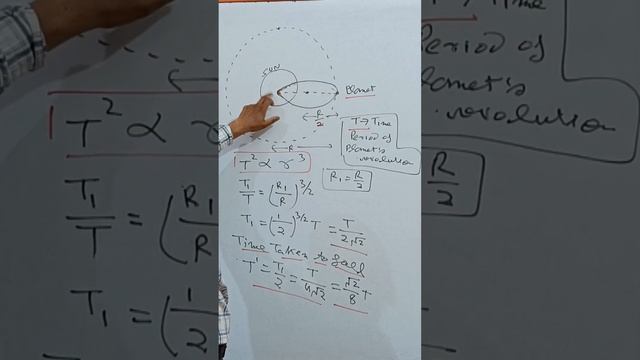 SUN
Planet
R/2
R
T → Time
Period of
Planet's
revolution
T² ∝ r³
R₁ = R/2
T₁/T = (R₁/R)^3/2
T₁ = (1/2)^3/2 T = T/2√2
Time Taken to fall
T' = T₁/2 = T/4√2 = √2/8 T
T² ∝ r³
T₁/T = (R₁/R
T₁ = (1/2
T → Time
Period of
Planet's
revolution
R/2